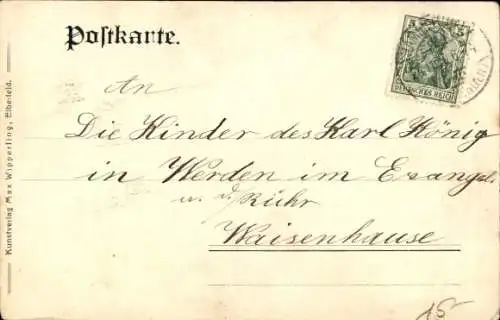 Postkarte.
5 5
DEUTSCHES REICH
An
Die Kinder des Karl König
in Werden im Evangel.
a. d. Ruhr
Waisenhause
15
Kunstverlag Max Wipperling, Elberfeld.